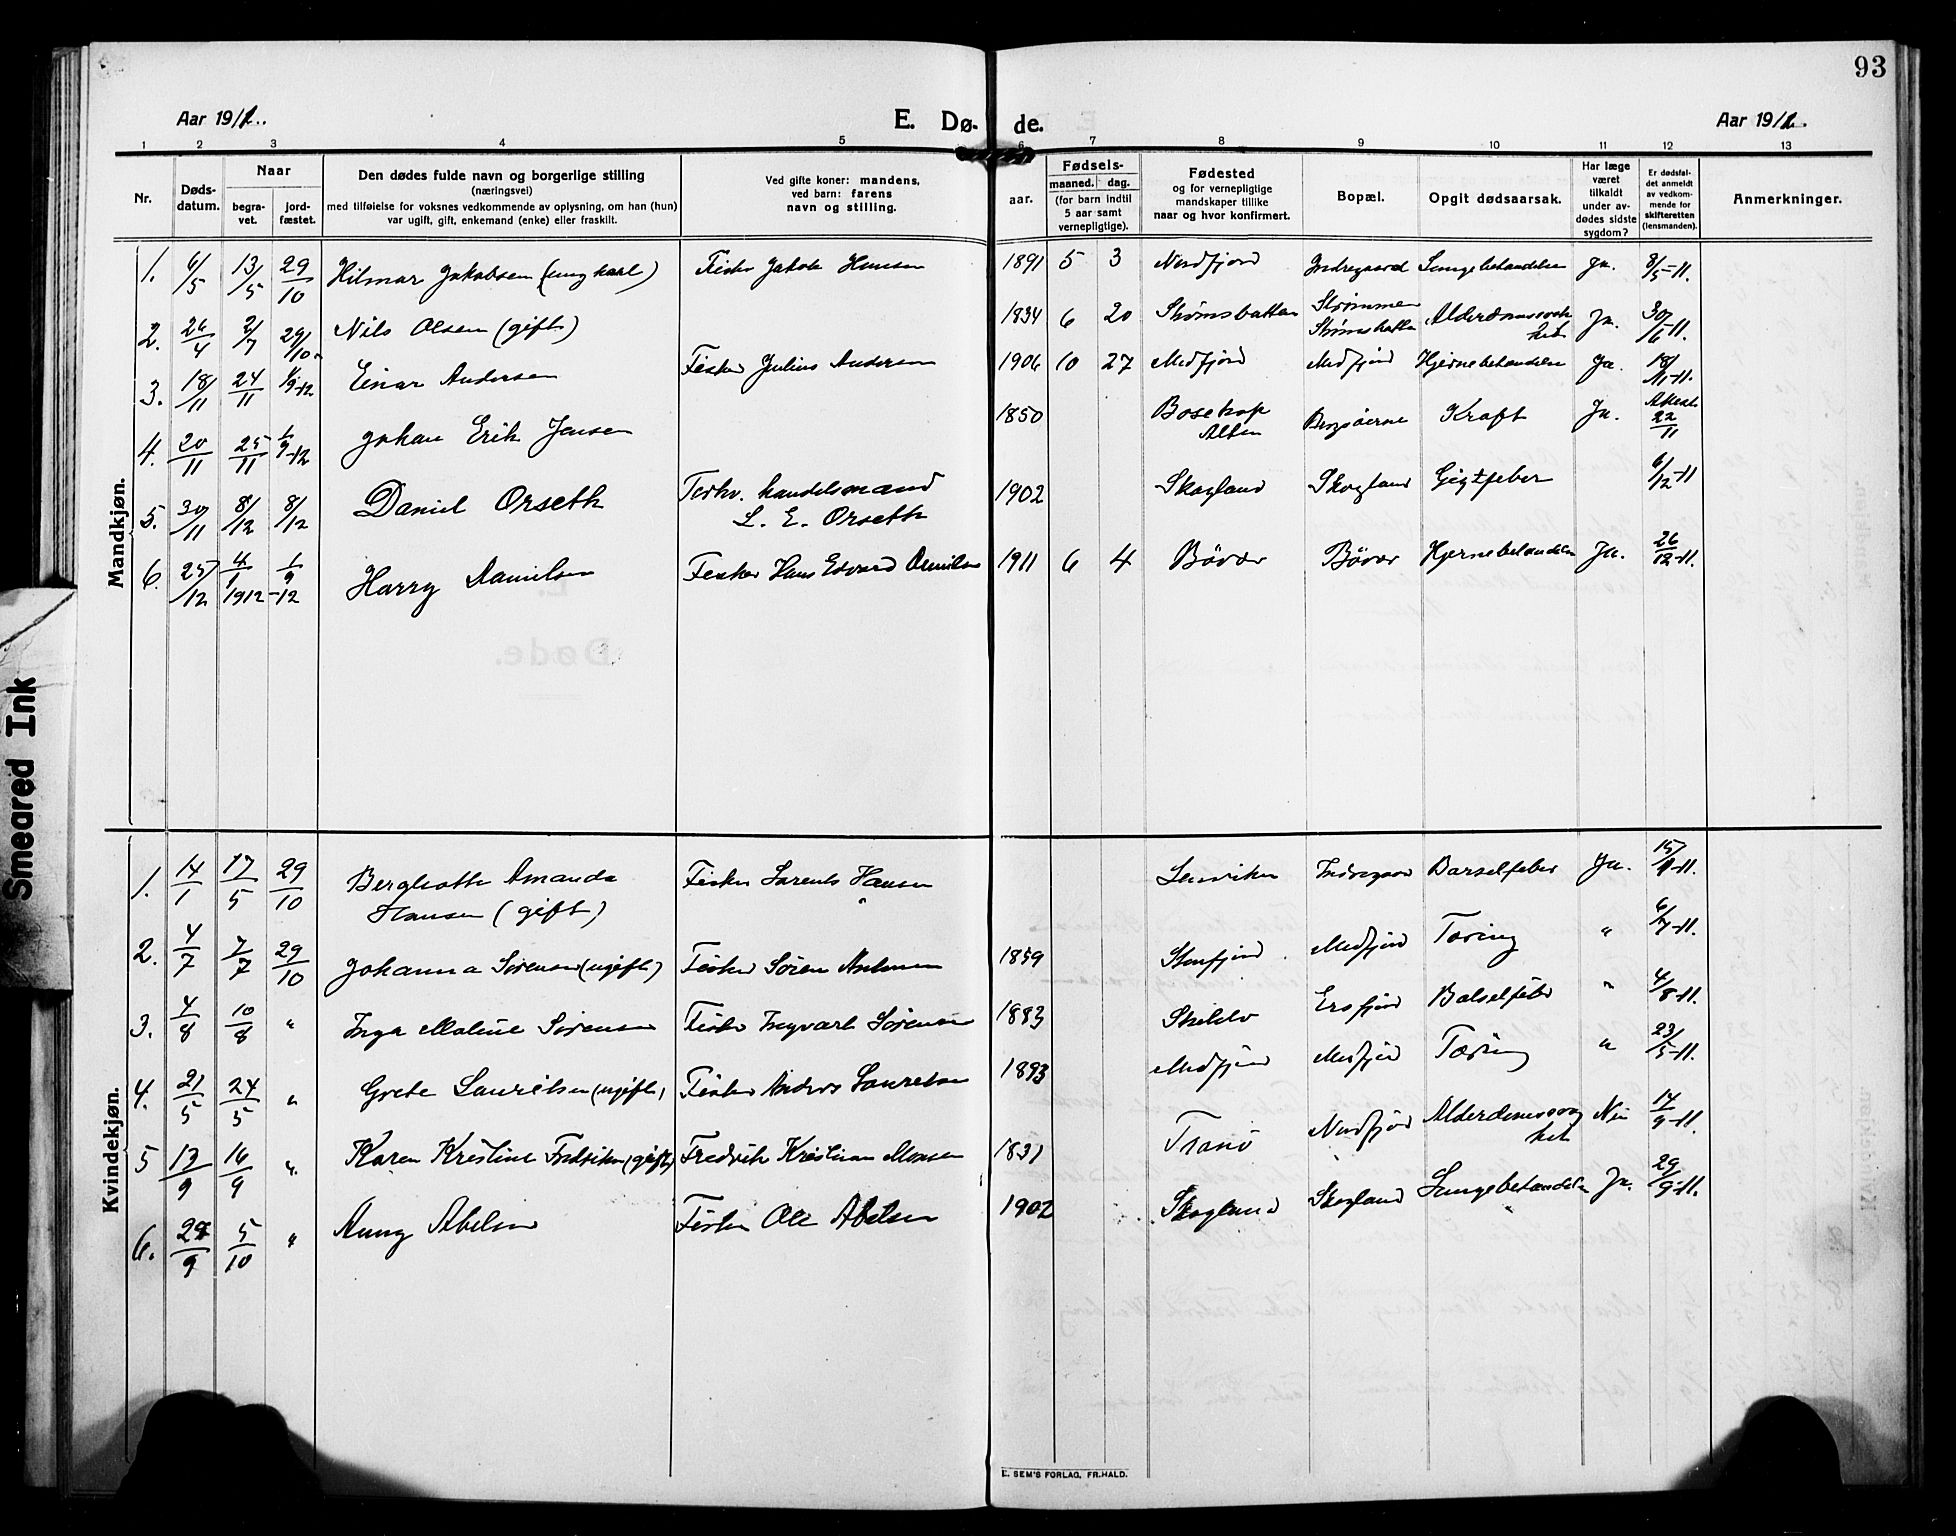 93
Aar 1911. E. Dø- de. Aar 1911.
1 2 3 4 5 6 7 8 9 10 11 12 13
Nr. Døds-datum. Naar begra-vet. jord-fæstet. Den dødes fulde navn og borgerlige stilling (næringsvei) med tilføielse for voksnes vedkommende av oplysning, om han (hun) var ugift, gift, enkemand (enke) eller fraskilt. Ved gifte koner: mandens, ved barn: farens navn og stilling. Fødsels- aar. maaned. dag. (for barn indtil 5 aar samt vernepligtige). Fødested og for vernepligtige mandskaper tillike naar og hvor konfirmert. Bopæl. Opgit dødsaarsak. Har læge været tilkaldt under av-dødes sidste sygdom? Er dødsfal-det anmeldt av vedkom-mende for skifteretten (lensmanden). Anmerkninger.
Mandkjøn.
1. 6/5 13/5 29/10 Hilmar Jakobsen (ungkarl) Fisker Jakob Hansen 1891 5 3 Nordfjord Indregaard Lungebetændelse Ja. 8/5-11.
2. 26/4 2/7 29/10 Nils Olsen (gift) 1834 6 20 Strømsbotten Strømmen Strømsbotten Alderdomssvakhet Ja. 30/6-11.
3. 18/11 24/11 1/9-12 Einar Andersen Fisker Julius Andersen 1906 10 27 Medfjord Medfjord Hjernebetændelse Ja. 18/11-11.
4. 20/11 25/11 1/9-12 Johan Erik Jensen 1850 Bosekop Alten Bergsøerne Kræft Ja. Attest 22/11
5. 30/11 8/12 8/12 Daniel Orseth Forhv. handelsmand L. E. Orseth 1902 Skogland Skogland Gigtfeber 6/12-11
6. 25/12 4/1 1912 1/9-12 Harry Danielsen Fisker Hans Edvard Danielsen 1911 6 4 Bövær Bövær Hjernebetændelse Ja. 26/12-11.
Kvindekjøn.
1. 14/1 17/5 29/10 Bergliotte Amanda Hansen (gift) Fisker Lorents Hansen Lenviken Indregaard Barselfeber Ja. 15/1-11.
2. 4/7 7/7 29/10 Johanna Sørensen (ugift) Fisker Sören 1859 Stenfjord Medfjord Tæring " 6/7-11.
3. 4/8 10/8 " Inga Maline Sørensen Fisker Ingvart Sørensen 1883 Ersfjord Balselfeber " 4/8-11.
4. 21/5 24/5 " Grete Lauritsen (ugift) Fisker Anders Lauritsen 1893 Medfjord Medfjord Tæring " 23/5-11.
5 13/9 16/9 " Karen Kristine Fredriksen (gift) Fredrik Kristian Monsen 1831 Tranö Nordfjord Alderdomssvakhet Nei 14/9-11.
6. 27/9 5/10 " Aunny Abelsen Fisker Ole Abelsen 1902 Skogland Skogland Lungebetændelse Ja. 29/9-11.
E. SEM'S FORLAG, FR.HALD.
Smeared Ink